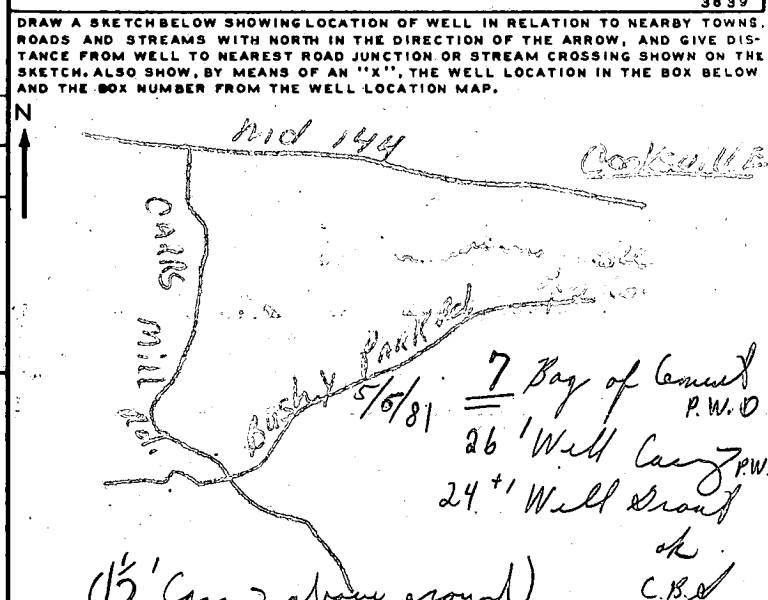 3839
DRAW A SKETCH BELOW SHOWING LOCATION OF WELL IN RELATION TO NEARBY TOWNS,
ROADS AND STREAMS WITH NORTH IN THE DIRECTION OF THE ARROW, AND GIVE DIS-
TANCE FROM WELL TO NEAREST ROAD JUNCTION OR STREAM CROSSING SHOWN ON THE
SKETCH. ALSO SHOW, BY MEANS OF AN "X", THE WELL LOCATION IN THE BOX BELOW
AND THE BOX NUMBER FROM THE WELL LOCATION MAP.
N
Md 144
Cooksville
Carrs Mill Rd.
Bushy Park Rd
5/5/81
7 Bag of Cement
P.W.D
26' Well Casing P.W.
24+' Well Grout
ok
C.B.S
(1½' Casing above ground)